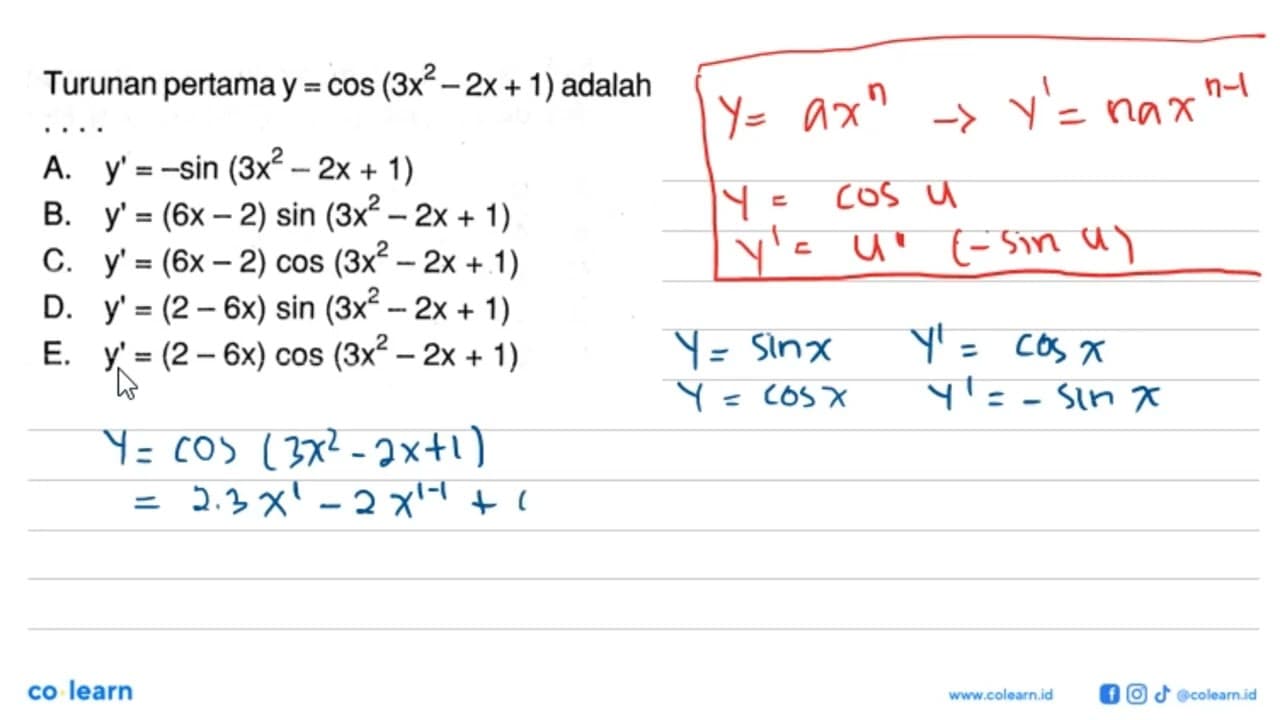 Turunan pertama y = cos (3x² – 2x + 1) adalah
....
A. y' = –sin (3x² – 2x + 1)
B. y' = (6x – 2) sin (3x² – 2x + 1)
C. y' = (6x – 2) cos (3x² – 2x + 1)
D. y' = (2 – 6x) sin (3x² – 2x + 1)
E. y' = (2 – 6x) cos (3x² – 2x + 1)
y = axⁿ → y' = naxⁿ⁻¹
y = cos u
y' = u' (-sin u)
y = sin x y' = cos x
y = cos x y' = - sin x
y = cos (3x² - 2x+1)
= 2.3x¹ - 2x¹⁻¹ + (
co·learn
www.colearn.id @colearn.id